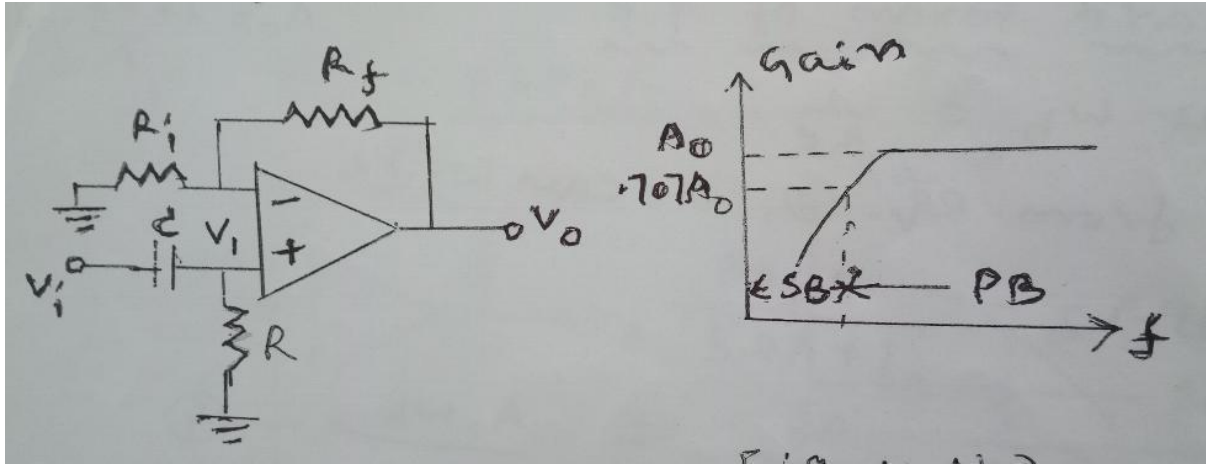 R_f
R_i
C
V_1
-
+
V_i
R
V_0
Gain
A_0
.707A_0
SB
PB
f